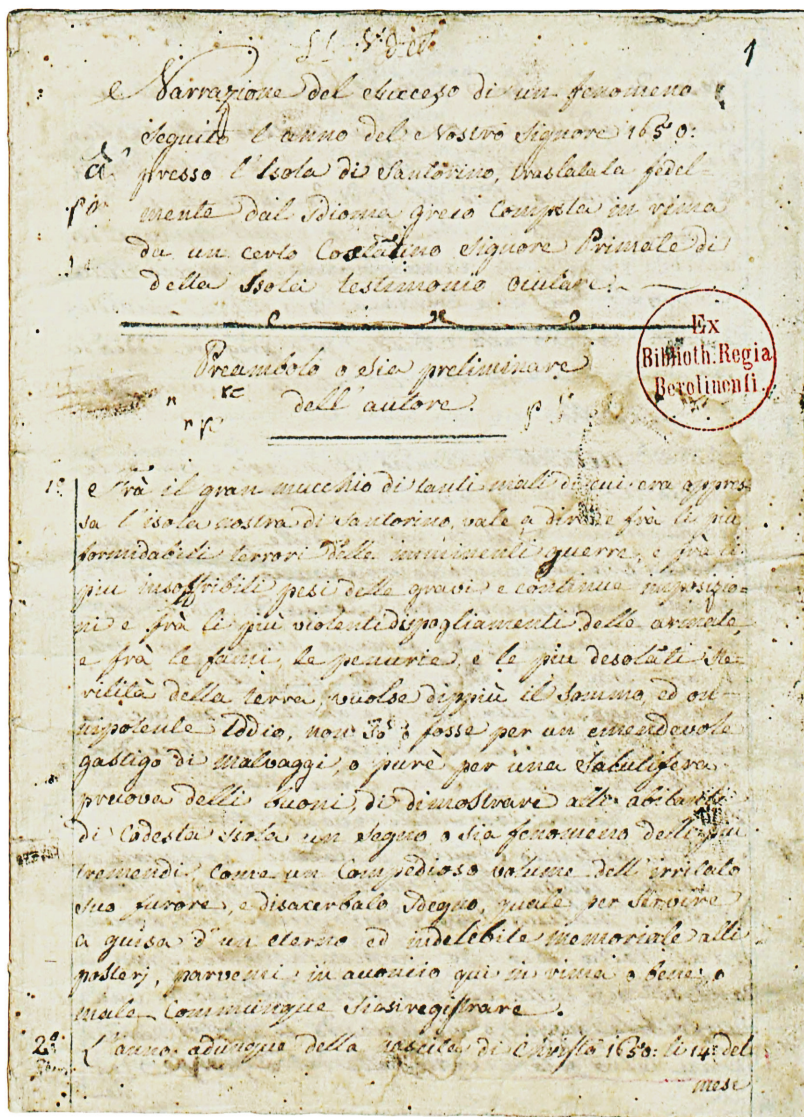 1
Narrazione del Successo di un fenomeno
Seguito l'anno del Nostro Signore 1650:
presso l'Isola di Santorino, traslatata fedel=
mente dal Idioma greco Composta in rima
da un certo Costatino Signore Primate di
della Isola testimonio oculare.
Ex
Biblioth. Regia
Berolinensi.
Preambolo o sia preliminare
dell'autore.
1º Frà il gran mucchio di tanti mali di cui era appres=
sa l'isola nostra di Santorino, vale a dire frà li più
formidabili terrori delle imminenti guerre, e frà li
più insoffribili pesi delle gravi e continue imposizio=
ni e frà li più violenti dispogliamenti delle armate,
e frà le fami, le penurie, e le più desolati ste=
rilità della terra, vuolse dippiù il sommo, ed on=
nipotente Iddio, non so o fosse per un emendevole
gastigo di malvaggi, o purè per una salutifera
pruova delli buoni, di dimostrare alli abitanti
di Codesta isola un segno o sia fenomeno delli più
tremendi, come un Compedioso volume dell'irritato
suo furore, e disacerbato sdegno, quale per servire
a guisa d'un eterno ed indelebile memoriale alli
posterj, parvemi in avoncio qui in rima o bene, o
male Communque siasi registrare.
2º L'anno adunque della nascita di Christo 1650: li 14: del
mese